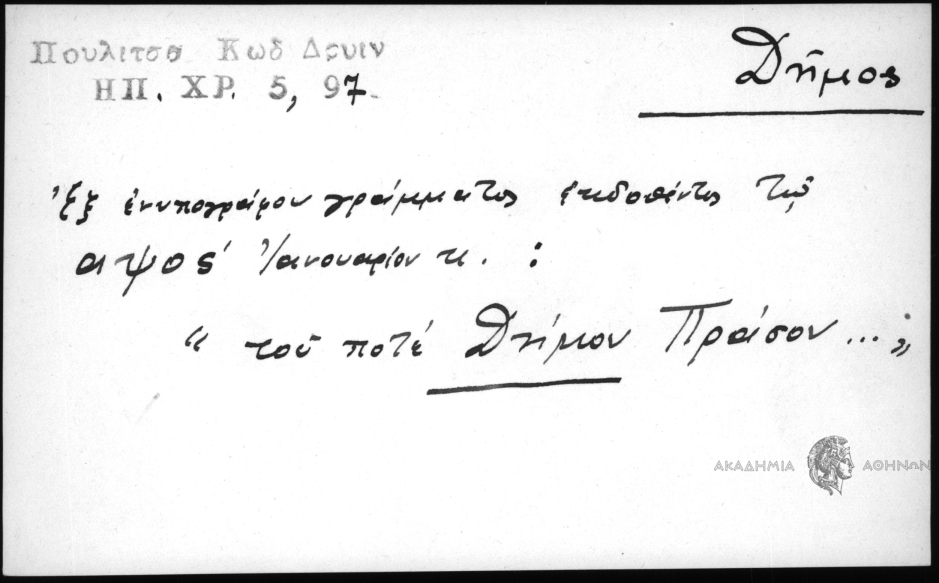 Πουλιτσα Κωδ Δρυιν
ΗΠ. ΧΡ. 5, 97.
Δῆμος
ἐξ ἐνυπογράφου γράμματος ἐκδοθέντος τῷ
αψος' Ἰανουαρίου κ. :
“ τοῦ ποτέ Δήμου Πράσου ... „
ΑΚΑΔΗΜΙΑ ΑΘΗΝΩΝ